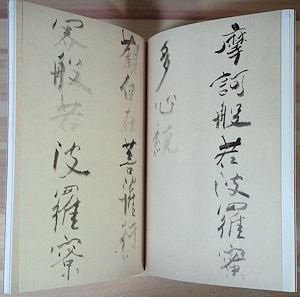 摩訶般若波羅蜜
多心経
観自在菩薩行
深般若波羅蜜